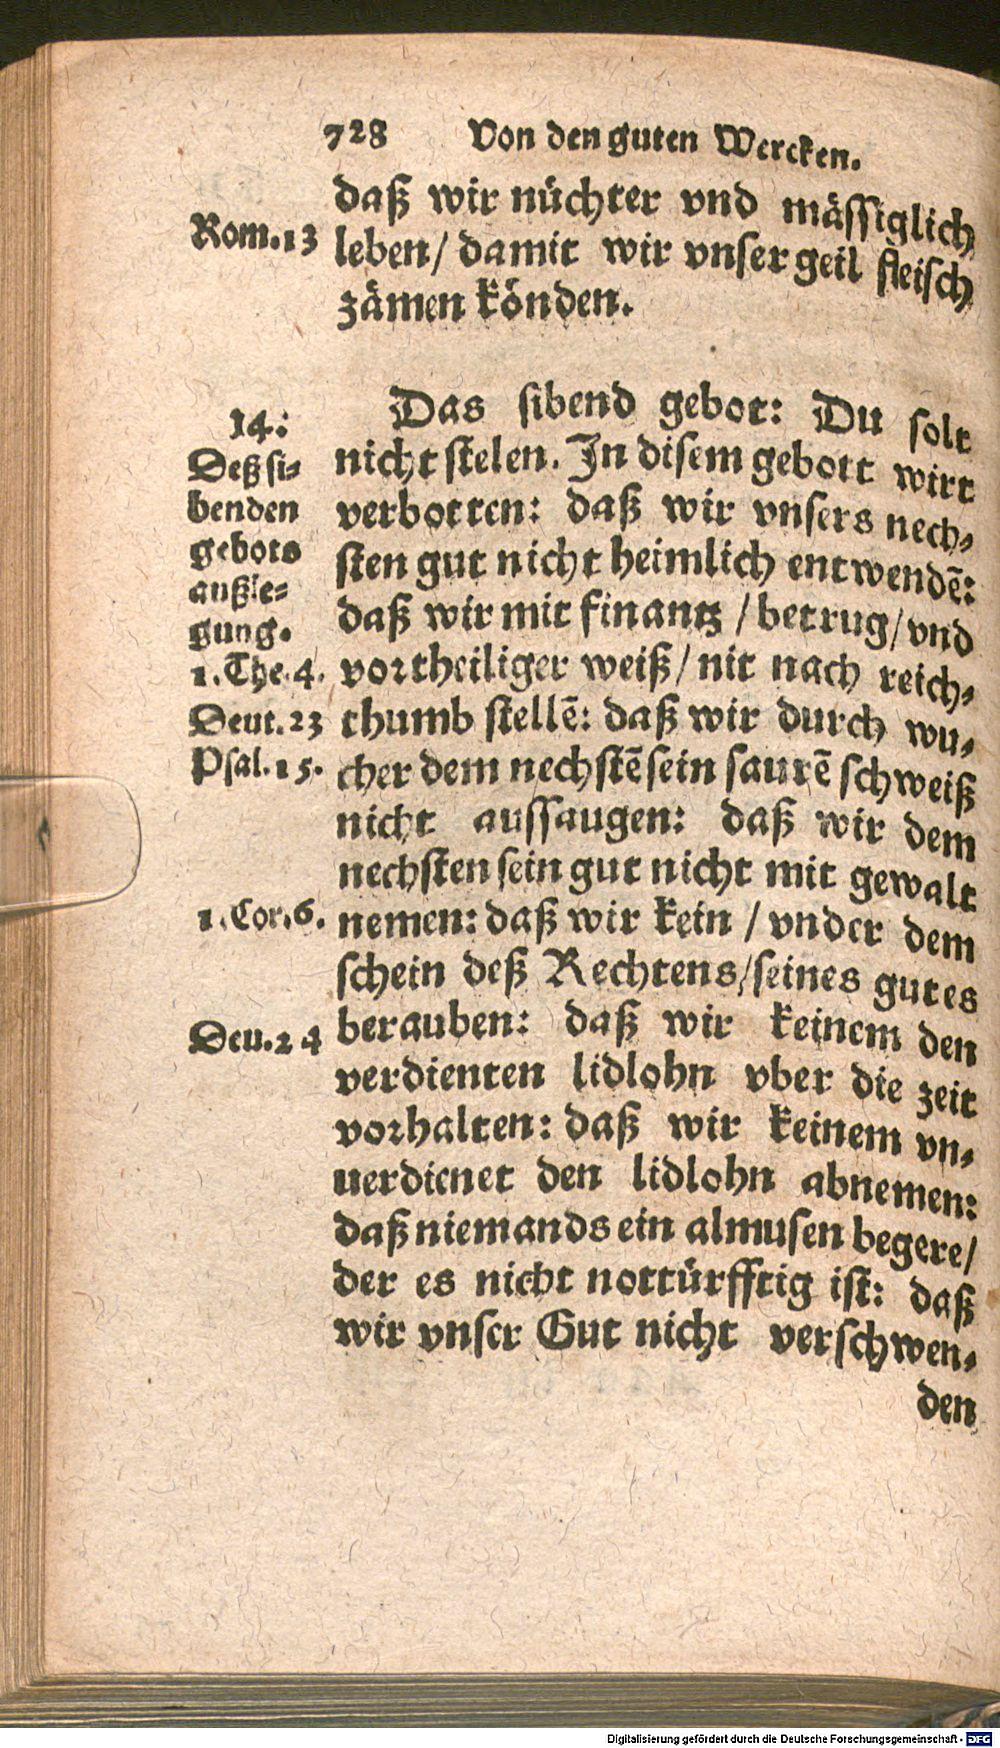 728 Von den guten Wercken.
daß wir nüchter vnd mässiglich
Rom.13
leben/ damit wir vnser geil fleisch
zämen könden.
Das sibend gebot: Du solt
14:
Deß si=
benden
gebots
außle=
gung.
1.The.4.
Deut.23
Psal.15.
nicht stelen. In disem gebott wirt
verbotten: daß wir vnsers nech=
sten gut nicht heimlich entwendē:
daß wir mit finantz / betrug/ vnd
vortheiliger weiß/ nit nach reich=
thumb stellē: daß wir durch wu=
cher dem nechstē sein saurē schweiß
nicht aussaugen: daß wir dem
nechsten sein gut nicht mit gewalt
1.Cor.6.
nemen: daß wir kein / vnder dem
schein deß Rechtens/ seines gutes
berauben: daß wir keinem den
Deu.24
verdienten lidlohn vber die zeit
vorhalten: daß wir keinem vn=
uerdienet den lidlohn abnemen:
daß niemands ein almusen begere/
der es nicht nottürfftig ist: daß
wir vnser Gut nicht verschwen=
den
Digitalisierung gefördert durch die Deutsche Forschungsgemeinschaft - DFG